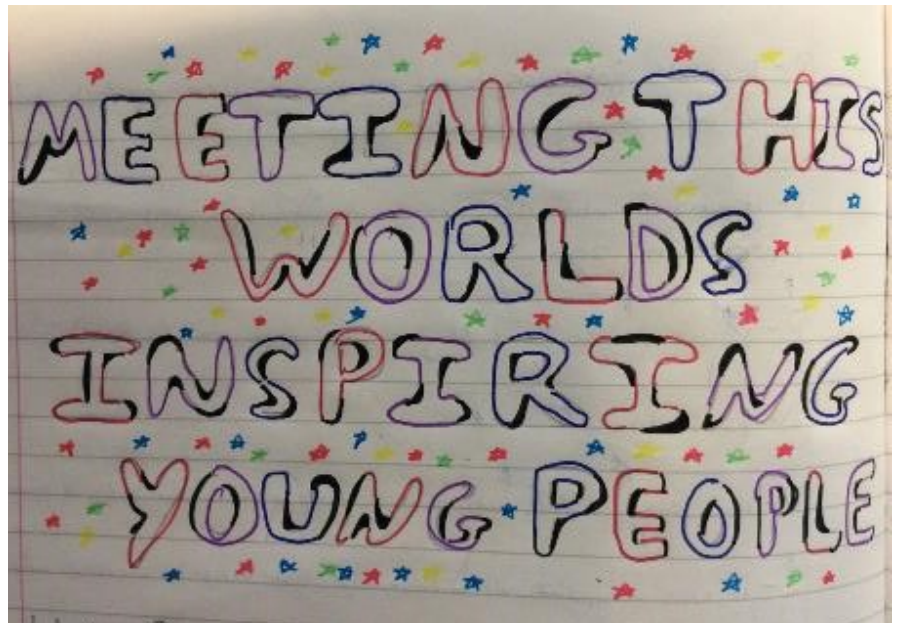 MEETING THIS
WORLDS
INSPIRING
YOUNG PEOPLE